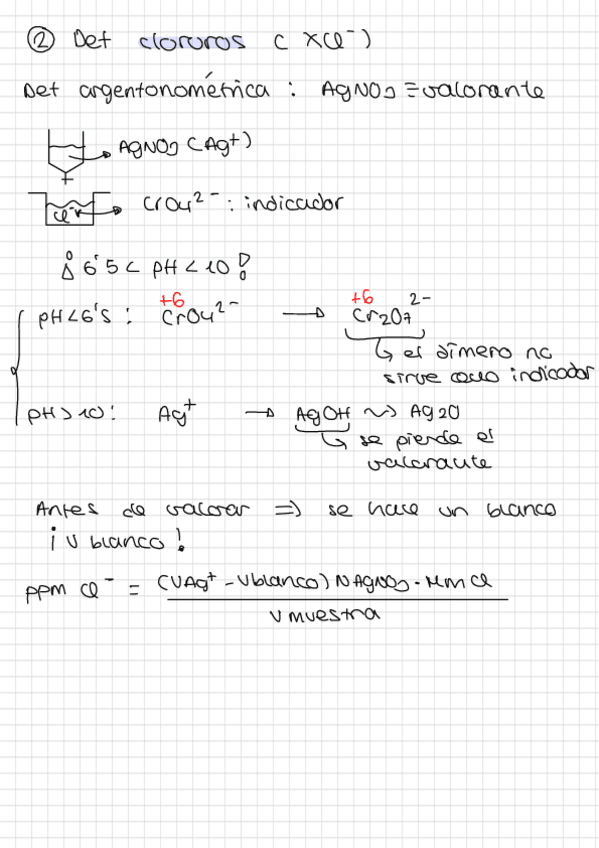 ② Det cloruros (XCl⁻)
Det argentonométrica : AgNO3 ≡ valorante
AgNO3 (Ag⁺)
Cl⁻
CrO4²⁻ : indicador
¡6'5 < pH < 10!
pH<6's : +6 CrO4²⁻ → +6 Cr2O7²⁻
↳ el dímero no
sirve como indicador
pH>10: Ag⁺ → AgOH ~> Ag2O
↳ se pierde el
valorante
Antes de valorar => se hace un blanco
¡V blanco!
ppm Cl⁻ = (VAg⁺ - Vblanco) NAgNO3 · Mm Cl
V muestra